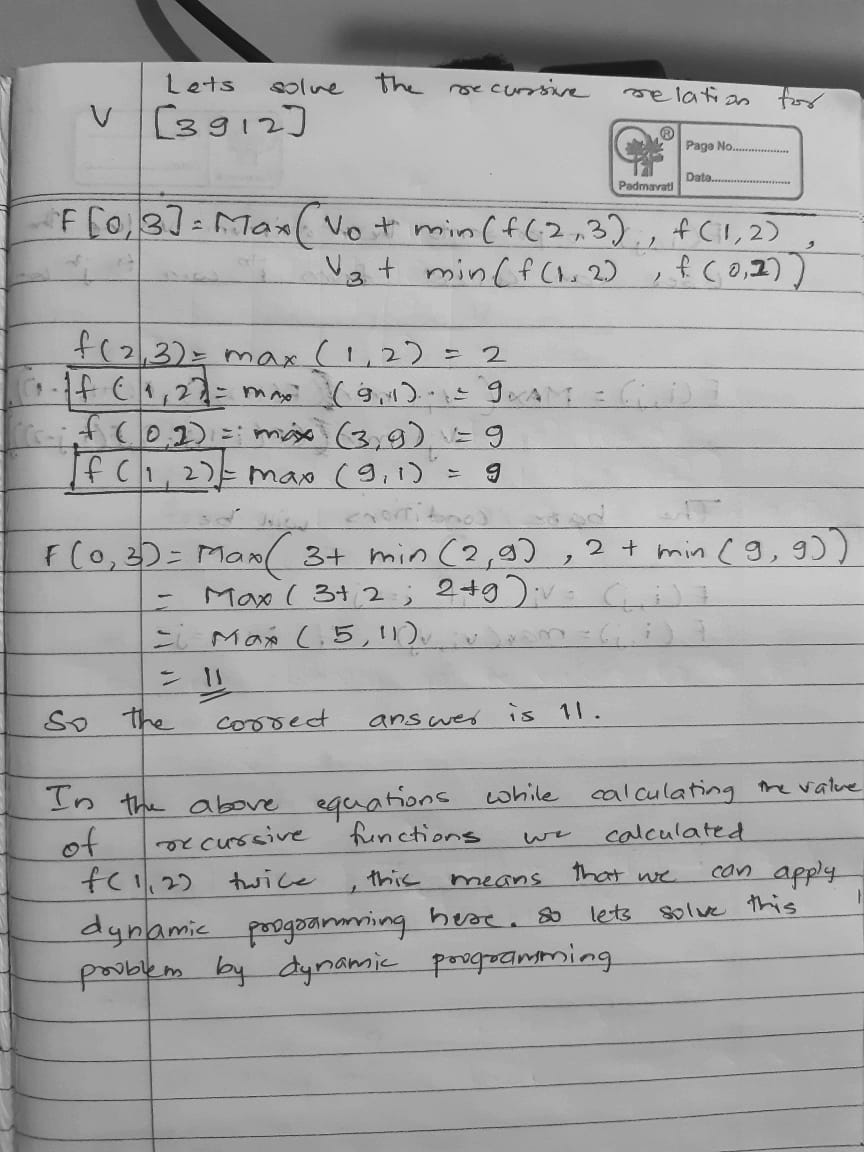 Lets solve the recursive relation for
V [3 9 1 2]
®
Page No.
Padmavati
Date
F[0,3] = Max(V0 + min(f(2,3), f(1,2),
V3 + min(f(1,2), f(0,1))
f(2,3) = max(1,2) = 2
f(1,2) = max (9,1) = 9
f(0,1) = max (3,9) = 9
f(1,2) = max (9,1) = 9
F(0,3) = Max( 3+ min(2,9), 2 + min(9,9))
= Max(3+2, 2+9)
= Max (5,11)
= 11
So the correct answer is 11.
In the above equations while calculating the value
of recursive functions we calculated
f(1,2) twice, this means that we can apply
dynamic programming here. So lets solve this
problem by dynamic programming